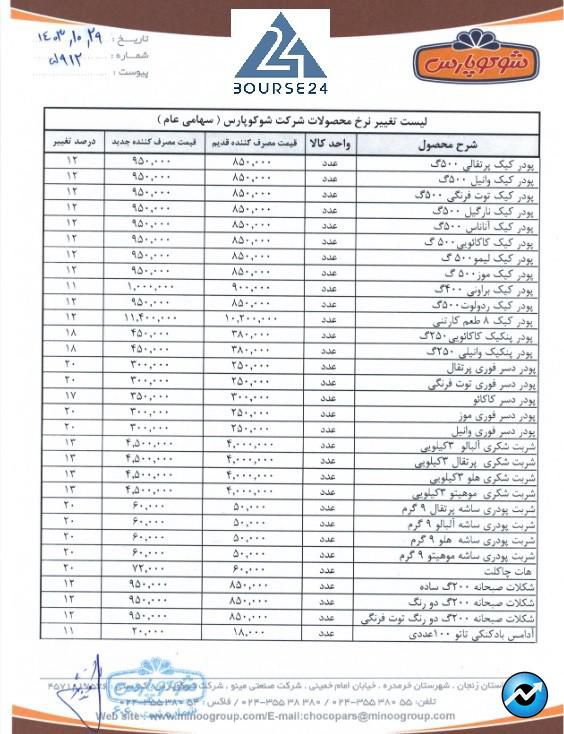 تاریخ : ۱۴۰۳,۱۰,۲۹
شماره : ۵۹۱۲
پیوست :
BOURSE24
شوکوپارس
لیست تغییر نرخ محصولات شرکت شوکوپارس ( سهامی عام )
شرح محصول واحد کالا قیمت مصرف کننده قدیم قیمت مصرف کننده جدید درصد تغییر
پودر کیک پرتقالی ۵۰۰گ عدد ۸۵۰,۰۰۰ ۹۵۰,۰۰۰ ۱۲
پودر کیک وانیل ۵۰۰گ عدد ۸۵۰,۰۰۰ ۹۵۰,۰۰۰ ۱۲
پودر کیک توت فرنگی ۵۰۰گ عدد ۸۵۰,۰۰۰ ۹۵۰,۰۰۰ ۱۲
پودر کیک نارگیل ۵۰۰گ عدد ۸۵۰,۰۰۰ ۹۵۰,۰۰۰ ۱۲
پودر کیک آناناس ۵۰۰گ عدد ۸۵۰,۰۰۰ ۹۵۰,۰۰۰ ۱۲
پودر کیک کاکائویی۵۰۰ گ عدد ۸۵۰,۰۰۰ ۹۵۰,۰۰۰ ۱۲
پودر کیک لیمو۵۰۰ گ عدد ۸۵۰,۰۰۰ ۹۵۰,۰۰۰ ۱۲
پودر کیک موز۵۰۰ گ عدد ۸۵۰,۰۰۰ ۹۵۰,۰۰۰ ۱۲
پودر کیک براونی ۴۰۰گ عدد ۹۰۰,۰۰۰ ۱,۰۰۰,۰۰۰ ۱۱
پودر کیک ردولوت۵۰۰گ عدد ۸۵۰,۰۰۰ ۹۵۰,۰۰۰ ۱۲
پودر کیک ۸ طعم کارتنی عدد ۱۰,۲۰۰,۰۰۰ ۱۱,۴۰۰,۰۰۰ ۱۲
پودر پنکیک کاکائویی۲۵۰گ عدد ۳۸۰,۰۰۰ ۴۵۰,۰۰۰ ۱۸
پودر پنکیک وانیلی ۲۵۰گ عدد ۳۸۰,۰۰۰ ۴۵۰,۰۰۰ ۱۸
پودر دسر فوری پرتقال عدد ۲۵۰,۰۰۰ ۳۰۰,۰۰۰ ۲۰
پودر دسر فوری توت فرنگی عدد ۲۵۰,۰۰۰ ۳۰۰,۰۰۰ ۲۰
پودر دسر کاکائو عدد ۳۰۰,۰۰۰ ۳۵۰,۰۰۰ ۱۷
پودر دسر فوری موز عدد ۲۵۰,۰۰۰ ۳۰۰,۰۰۰ ۲۰
پودر دسر فوری وانیل عدد ۲۵۰,۰۰۰ ۳۰۰,۰۰۰ ۲۰
شربت شکری آلبالو ۳کیلویی عدد ۴,۰۰۰,۰۰۰ ۴,۵۰۰,۰۰۰ ۱۳
شربت شکری پرتقال ۳کیلویی عدد ۴,۰۰۰,۰۰۰ ۴,۵۰۰,۰۰۰ ۱۳
شربت شکری هلو ۳کیلویی عدد ۴,۰۰۰,۰۰۰ ۴,۵۰۰,۰۰۰ ۱۳
شربت شکری موهیتو ۳کیلویی عدد ۴,۰۰۰,۰۰۰ ۴,۵۰۰,۰۰۰ ۱۳
شربت پودری ساشه پرتقال ۹ گرم عدد ۵۰,۰۰۰ ۶۰,۰۰۰ ۲۰
شربت پودری ساشه آلبالو ۹ گرم عدد ۵۰,۰۰۰ ۶۰,۰۰۰ ۲۰
شربت پودری ساشه هلو ۹ گرم عدد ۵۰,۰۰۰ ۶۰,۰۰۰ ۲۰
شربت پودری ساشه موهیتو ۹ گرم عدد ۵۰,۰۰۰ ۶۰,۰۰۰ ۲۰
هات چاکلت عدد ۶۰,۰۰۰ ۷۲,۰۰۰ ۲۰
شکلات صبحانه ۲۰۰گ ساده عدد ۸۵۰,۰۰۰ ۹۵۰,۰۰۰ ۱۲
شکلات صبحانه ۲۰۰گ دو رنگ عدد ۸۵۰,۰۰۰ ۹۵۰,۰۰۰ ۱۲
شکلات صبحانه ۲۰۰گ دو رنگ توت فرنگی عدد ۸۵۰,۰۰۰ ۹۵۰,۰۰۰ ۱۲
آدامس بادکنکی تاتو ۱۰۰عددی عدد ۱۸,۰۰۰ ۲۰,۰۰۰ ۱۱
استان زنجان ، شهرستان خرمدره ، خیابان امام خمینی ، شرکت صنعتی مینو ، شرکت شوکوپارس
تلفن: ۵۵ ۸۰ ۳۵۵-۰۲۴ / ۸۰ ۳۸ ۳۵۵-۰۲۴ / فاکس : ۵۴ ۸۰ ۳۵۵-۰۲۴
Web site: www.minoogroup.com/E-mail:chocopars@minoogroup.com